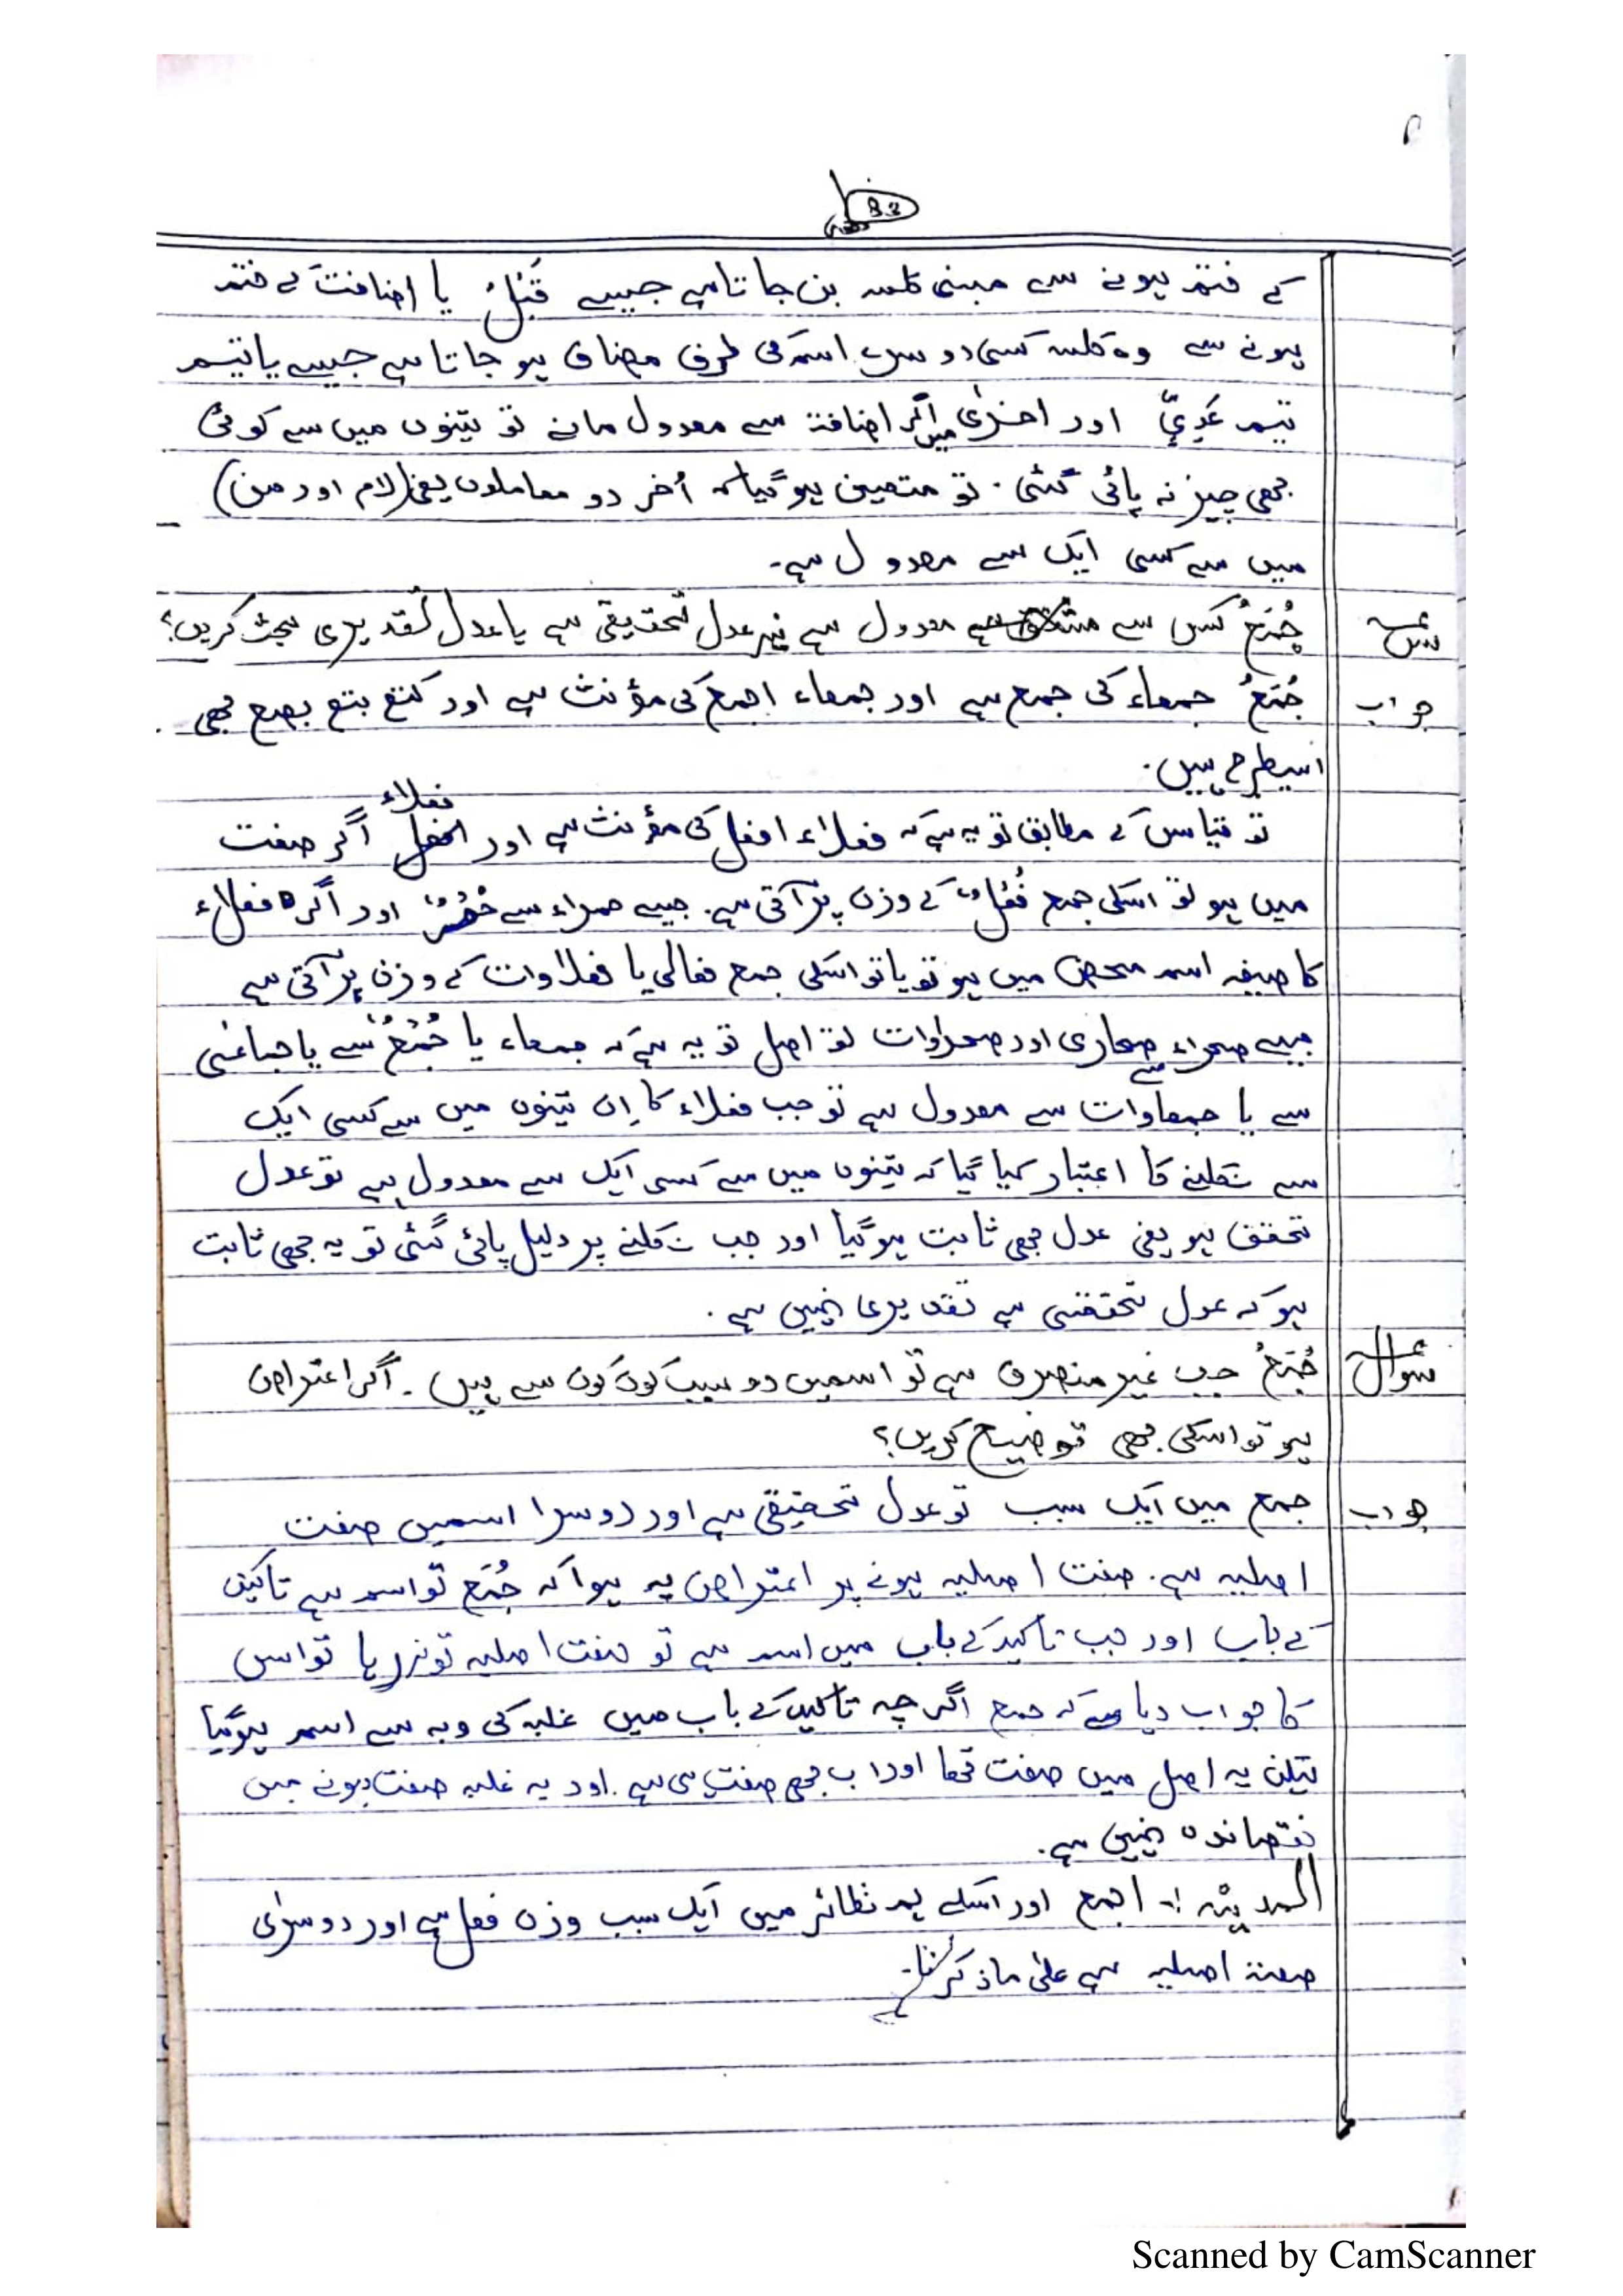 83
کے ختم ہونے سے مبنی کلمہ بن جاتا ہے جیسے قَبْلُ یا اضافت کے ختم
ہونے سے وہ کلمہ کسی دوسرے اسم کی طرف مضاف ہو جاتا ہے جیسے یا تیم
تیم عَدِیٍّ اور اخریٰ میں اگر اضافۃ سے معدول مانے تو تینوں میں سے کوئی
بھی چیز نہ پائی گئی۔ تو متعین ہو گیا کہ اُخر دو معاملوں یعنی (لام اور من)
میں سے کسی ایک سے معدول ہے۔
س جُمَعُ کس سے معدول ہے نیز عدل تحقیقی ہے یا عدل تقدیری بحث کریں؟
جواب جُمَعُ جمعاء کی جمع ہے اور جمعاء اجمع کی مؤنث ہے اور کتع بتع بصع بھی
اسیطرح ہیں۔
تو قیاس کے مطابق تو یہ ہے کہ فعلاء افعل کی مؤنث ہے اور فعلاء اگر صفت
میں ہو تو اسکی جمع فُعْلٌ کے وزن پر آتی ہے۔ جیسے حمراء سے حُمْرٌ اور اگر فعلاء
کا صیغہ اسم محض میں ہو تو یا تو اسکی جمع فعالی یا فعلاوات کے وزن پر آتی ہے
جیسے صحراء سے صحاری اور صحراوات تو اصل تو یہ ہے کہ جمعاء یا جُمْعٌ سے یا جماعٰی
سے یا جمعاوات سے معدول ہے تو جب فعلاء کا اِن تینوں میں سے کسی ایک
سے نکلنے کا اعتبار کیا گیا کہ تینوں میں سے کسی ایک سے معدول ہے تو عدل
تحقق ہو یعنی عدل بھی ثابت ہو گیا اور جب نکلنے پر دلیل پائی گئی تو یہ بھی ثابت
ہو کہ عدل تحققی ہے تقدیری نہیں ہے۔
سوال جُمَعُ جب غیر منصرف ہے تو اسمیں دو سبب کون کون سے ہیں۔ اگر اعتراض
ہو تو اسکی بھی توضیح کریں؟
جواب جمع میں ایک سبب تو عدل تحقیقی ہے اور دوسرا اسمیں صفت
اصلیہ ہے۔ صفت اصلیہ ہونے پر اعتراض یہ ہوا کہ جُمَع تو اسم ہے تاکید
کے باب اور جب تاکید کے باب میں اسم ہے تو صفت اصلیہ تو نہ رہا تو اس
کا جواب دیا ہے کہ جمع اگرچہ تاکید کے باب میں غلبہ کی وجہ سے اسم ہو گیا
لیکن یہ اصل میں صفت تھا اور اب بھی صفت ہی ہے۔ اور یہ غلبہ صفت ہونے میں
نقصاندہ نہیں ہے۔
اجمع اور اسکے ہم نظائر میں ایک سبب وزن فعل ہے اور دوسری
صفۃ اصلیہ ہے علیٰ ما ذکرنا۔
Scanned by CamScanner